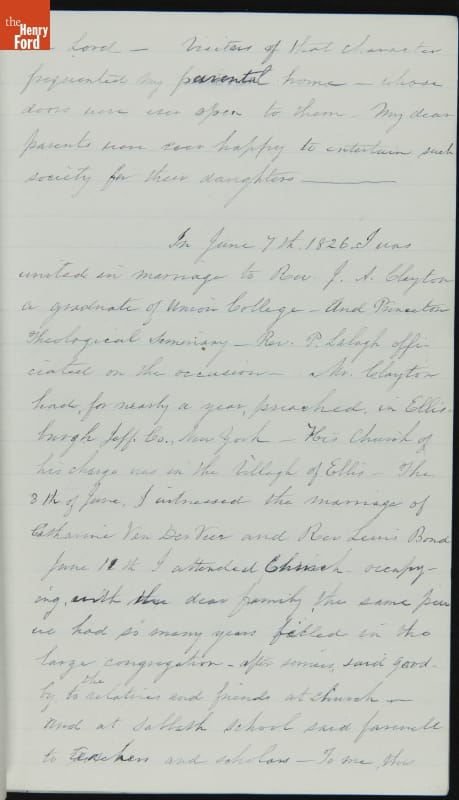 the
Henry
Ford
Lord — Visitors of that character
frequented my parental home — whose
doors were ever open to them — My dear
parents were ever happy to entertain such
society for their daughters —
In June 7th. 1826. I was
united in marriage to Rev. J. A. Clayton
a graduate of Union College — And Princeton
Theological Seminary — Rev. P. Labagh offi-
ciated on the occasion — Mr. Clayton
had, for nearly a year, preached, in Ellis-
burgh Jeff. Co., New York — His Church of
his charge was in the Villagh of Ellis — The
8th of June, I witnessed the marriage of
Catharine Van Der Veer and Rev Lewis Bond
June 11th I attended Church occupy-
ing, with the dear family, the same pew
we had so many years filled in the
large congregation — after service, said good-
by, to the relatives and friends at church —
and at Sabbath School said farewell
to teachers and scholars — To me, this